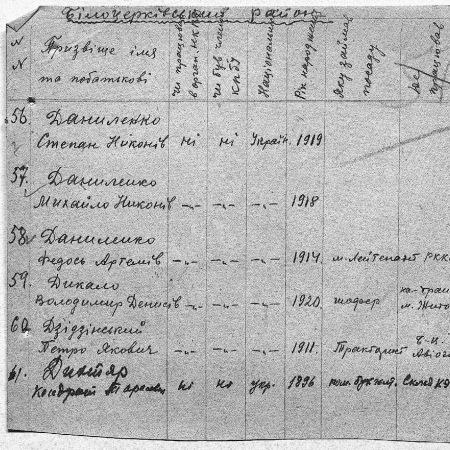 Білоцерківський район
N N Призвіще імя та побаткові чи працював в орган. нкв чи був члени кпбу Національн Рік народжен Яку займав посаду Де працював
56. Даниленко
Степан Никонів ні ні Україн. 1919
57. Даниленко
Михайло Никонів —„— —„— —„— 1918
58. Даниленко
Федось Артемів —„— —„— —„— 1914. м-лейтенант РКК
59. Дикало
Володимир Денисів —„— —„— —„— 1920. шофер
60. Дзідзінський
Петро Якович —„— —„— —„— 1911. Тракторист
61. Дихтяр
Кондрат ні ні укр. 1896